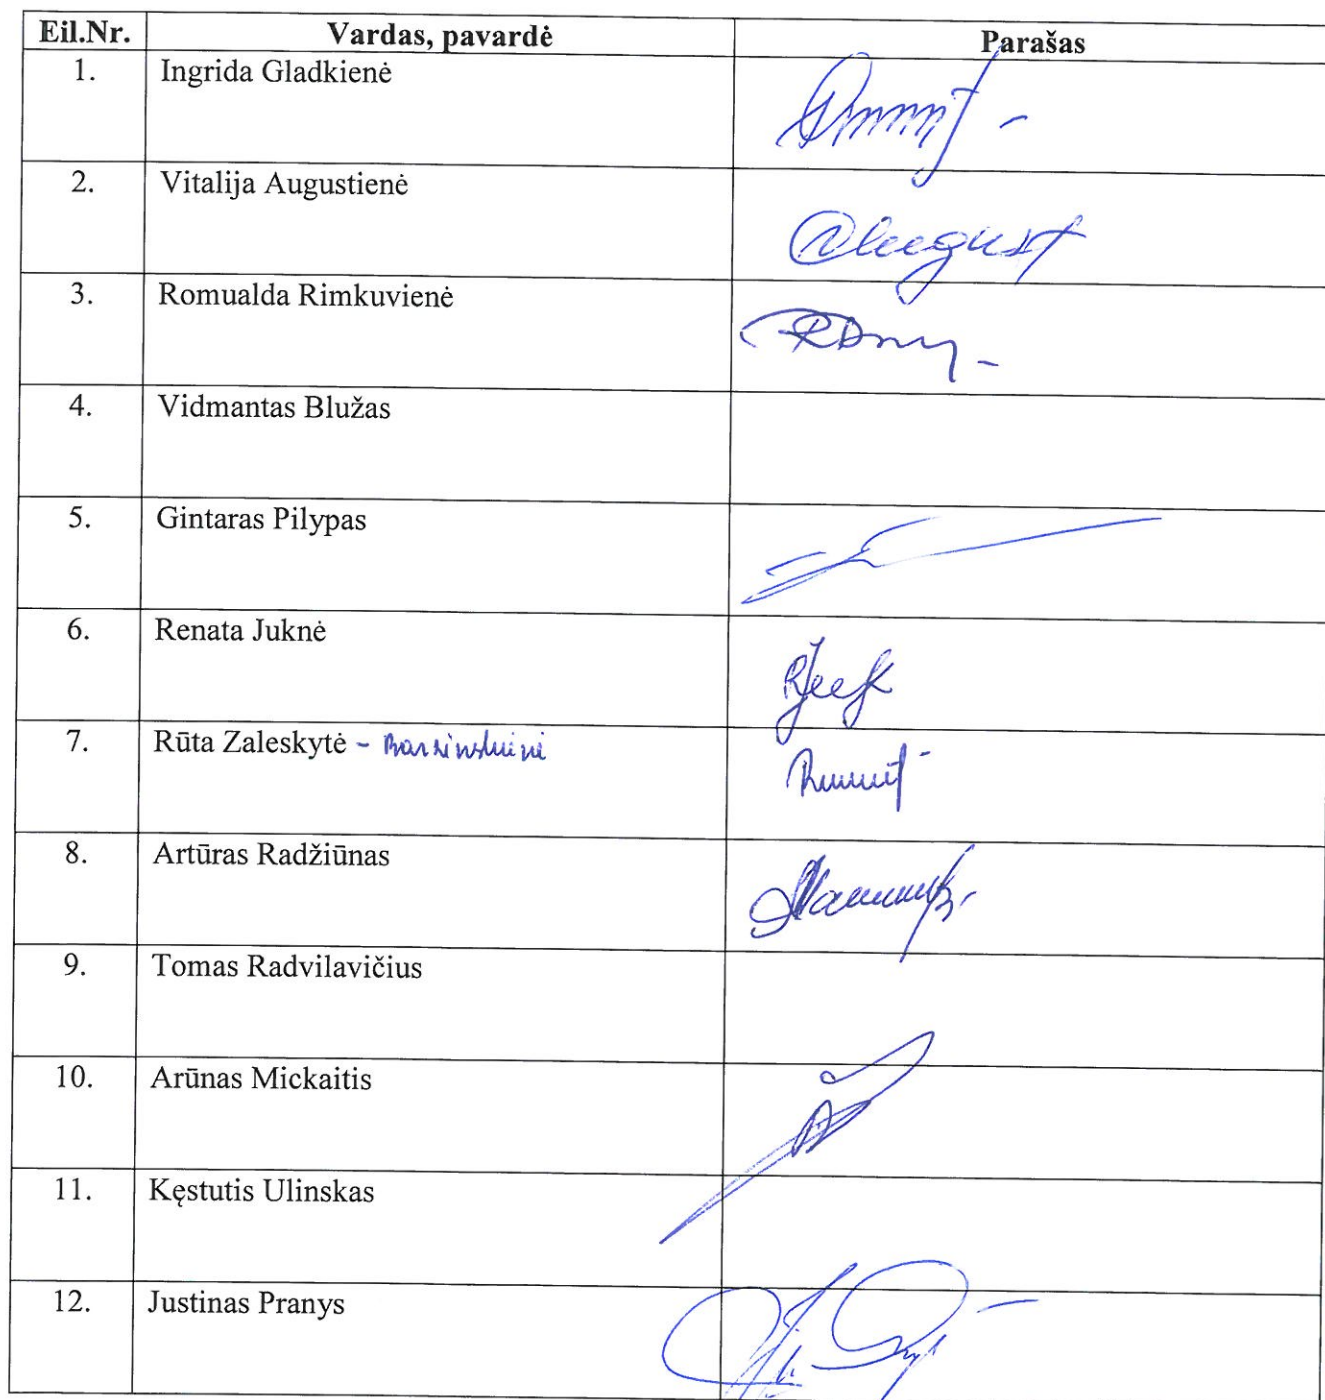 Eil.Nr. Vardas, pavardė Parašas
1. Ingrida Gladkienė
2. Vitalija Augustienė
3. Romualda Rimkuvienė
4. Vidmantas Blužas
5. Gintaras Pilypas
6. Renata Juknė
7. Rūta Zaleskytė -
8. Artūras Radžiūnas
9. Tomas Radvilavičius
10. Arūnas Mickaitis
11. Kęstutis Ulinskas
12. Justinas Pranys